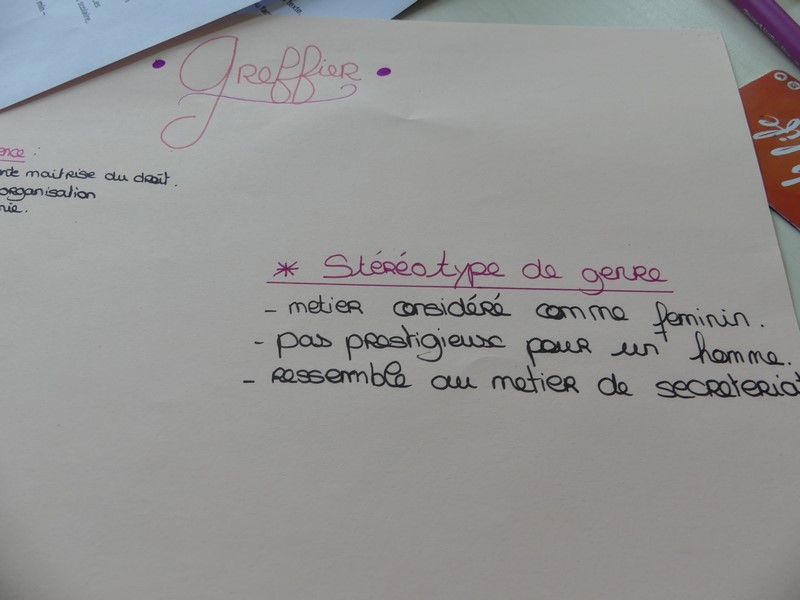 Greffier
maitrise du droit.
organisation
* Stéréotype de genre
- metier considéré comme feminin.
- pas prestigieux pour un homme.
- ressemble au metier de secreteriat